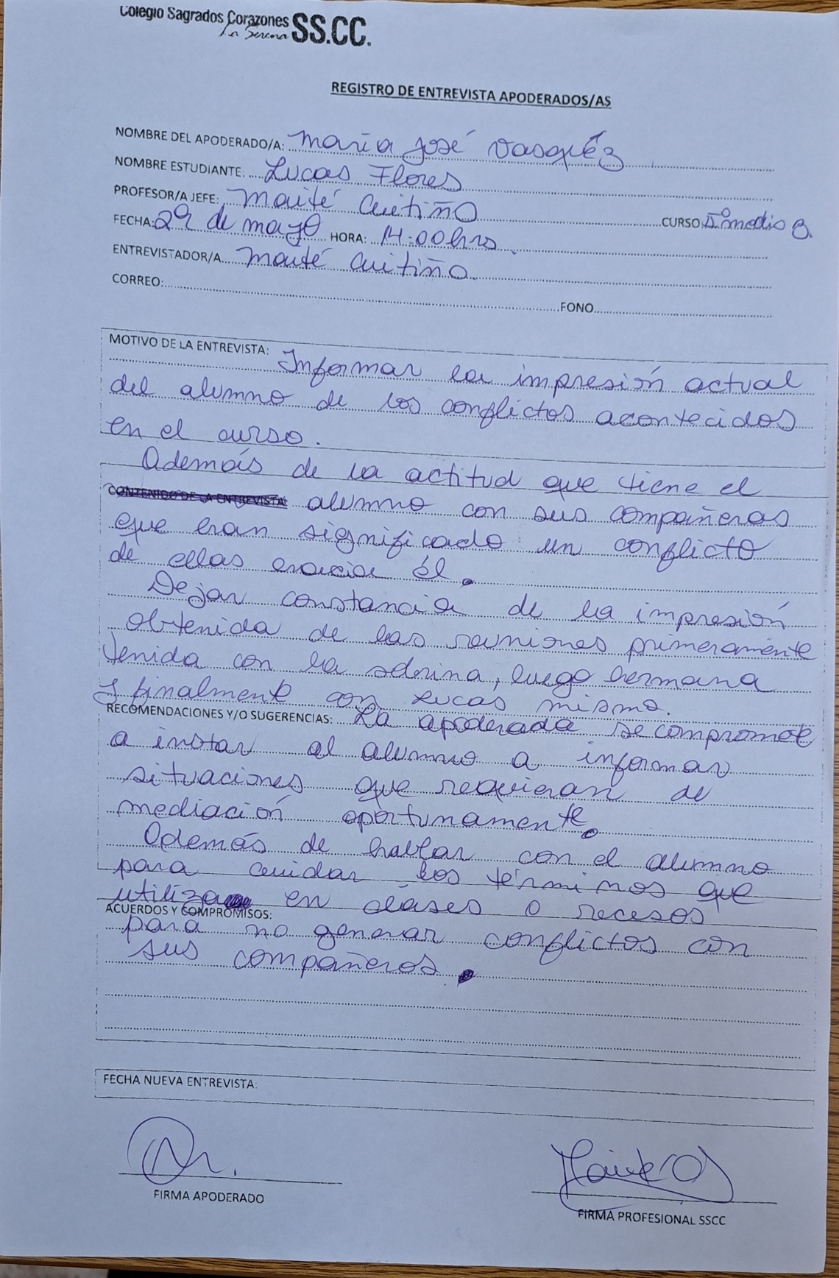 Colegio Sagrados Corazones SS.CC.
La Serena
REGISTRO DE ENTREVISTA APODERADOS/AS
NOMBRE DEL APODERADO/A: Maria José Vasquez
NOMBRE ESTUDIANTE: Lucas Flores
PROFESOR/A JEFE: Maité Cuitiño CURSO: Iº medio B.
FECHA: 29 de mayo HORA: 14:00hrs
ENTREVISTADOR/A Maité Cuitiño
CORREO: FONO
MOTIVO DE LA ENTREVISTA: Informar la impresión actual
del alumno de los conflictos acontecidos
en el curso.
Además de la actitud que tiene el
CONTENIDO DE LA ENTREVISTA alumno con sus compañeras
que eran significado un conflicto
de ellas hacia él.
Dejar constancia de la impresión
obtenida de las reuniones primeramente
tenida con la sobrina, luego hermana
y finalmente con Lucas mismo.
RECOMENDACIONES Y/O SUGERENCIAS: La apoderada se compromete
a instar al alumno a informar
situaciones que requieran de
mediación oportunamente.
Además de hablar con el alumno
para cuidar los términos que
utiliza en clases o recesos
ACUERDOS Y COMPROMISOS:
para no generar conflictos con
sus compañeros.
FECHA NUEVA ENTREVISTA:
FIRMA APODERADO
FIRMA PROFESIONAL SSCC